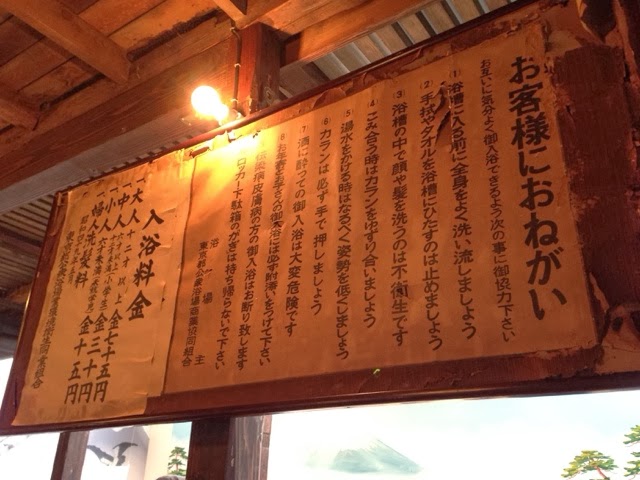 お客様におねがい
お互いに気分よく御入浴できるよう次の事に御協力下さい
⑴ 浴槽に入る前に全身をよく洗い流しましょう
⑵ 手拭やタオルを浴槽にひたすのは止めましょう
⑶ 浴槽の中で顔や髪を洗うのは不衛生です
⑷ ごみ合う時はカランをゆずり合いましょう
⑸ 湯水をかける時はなるべく姿勢を低くしましょう
⑹ カランは必ず手で押しましょう
⑺ 酒に酔っての御入浴は大変危険です
伝染病皮膚病の方の御入浴はお断り致します
ロッカー下駄箱のかぎは持ち帰らないで下さい
浴場主
東京都公衆浴場商業協同組合
入浴料金
大人 十二才以上 金七十五円
中人
小人 六才未満
婦人洗髪料 金十五円